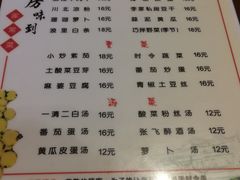 味到
川北凉粉 16元 李家私房豆干 16元
甜甜萝卜 16元 蒜泥黄瓜 16元
浪里白条 16元 巧拌野菜(季节) 16元
素菜
小炒紫茄 18元 时令蔬菜 16元
土酸菜豆芽 16元 番茄炒蛋 16元
麻婆豆腐 16元 青椒土豆丝 16元
汤菜
一清二白汤 16元 酸菜粉丝汤 16元
番茄蛋汤 16元 张飞醉酒汤 12元
黄瓜皮蛋汤 12元 萝卜汤 12元